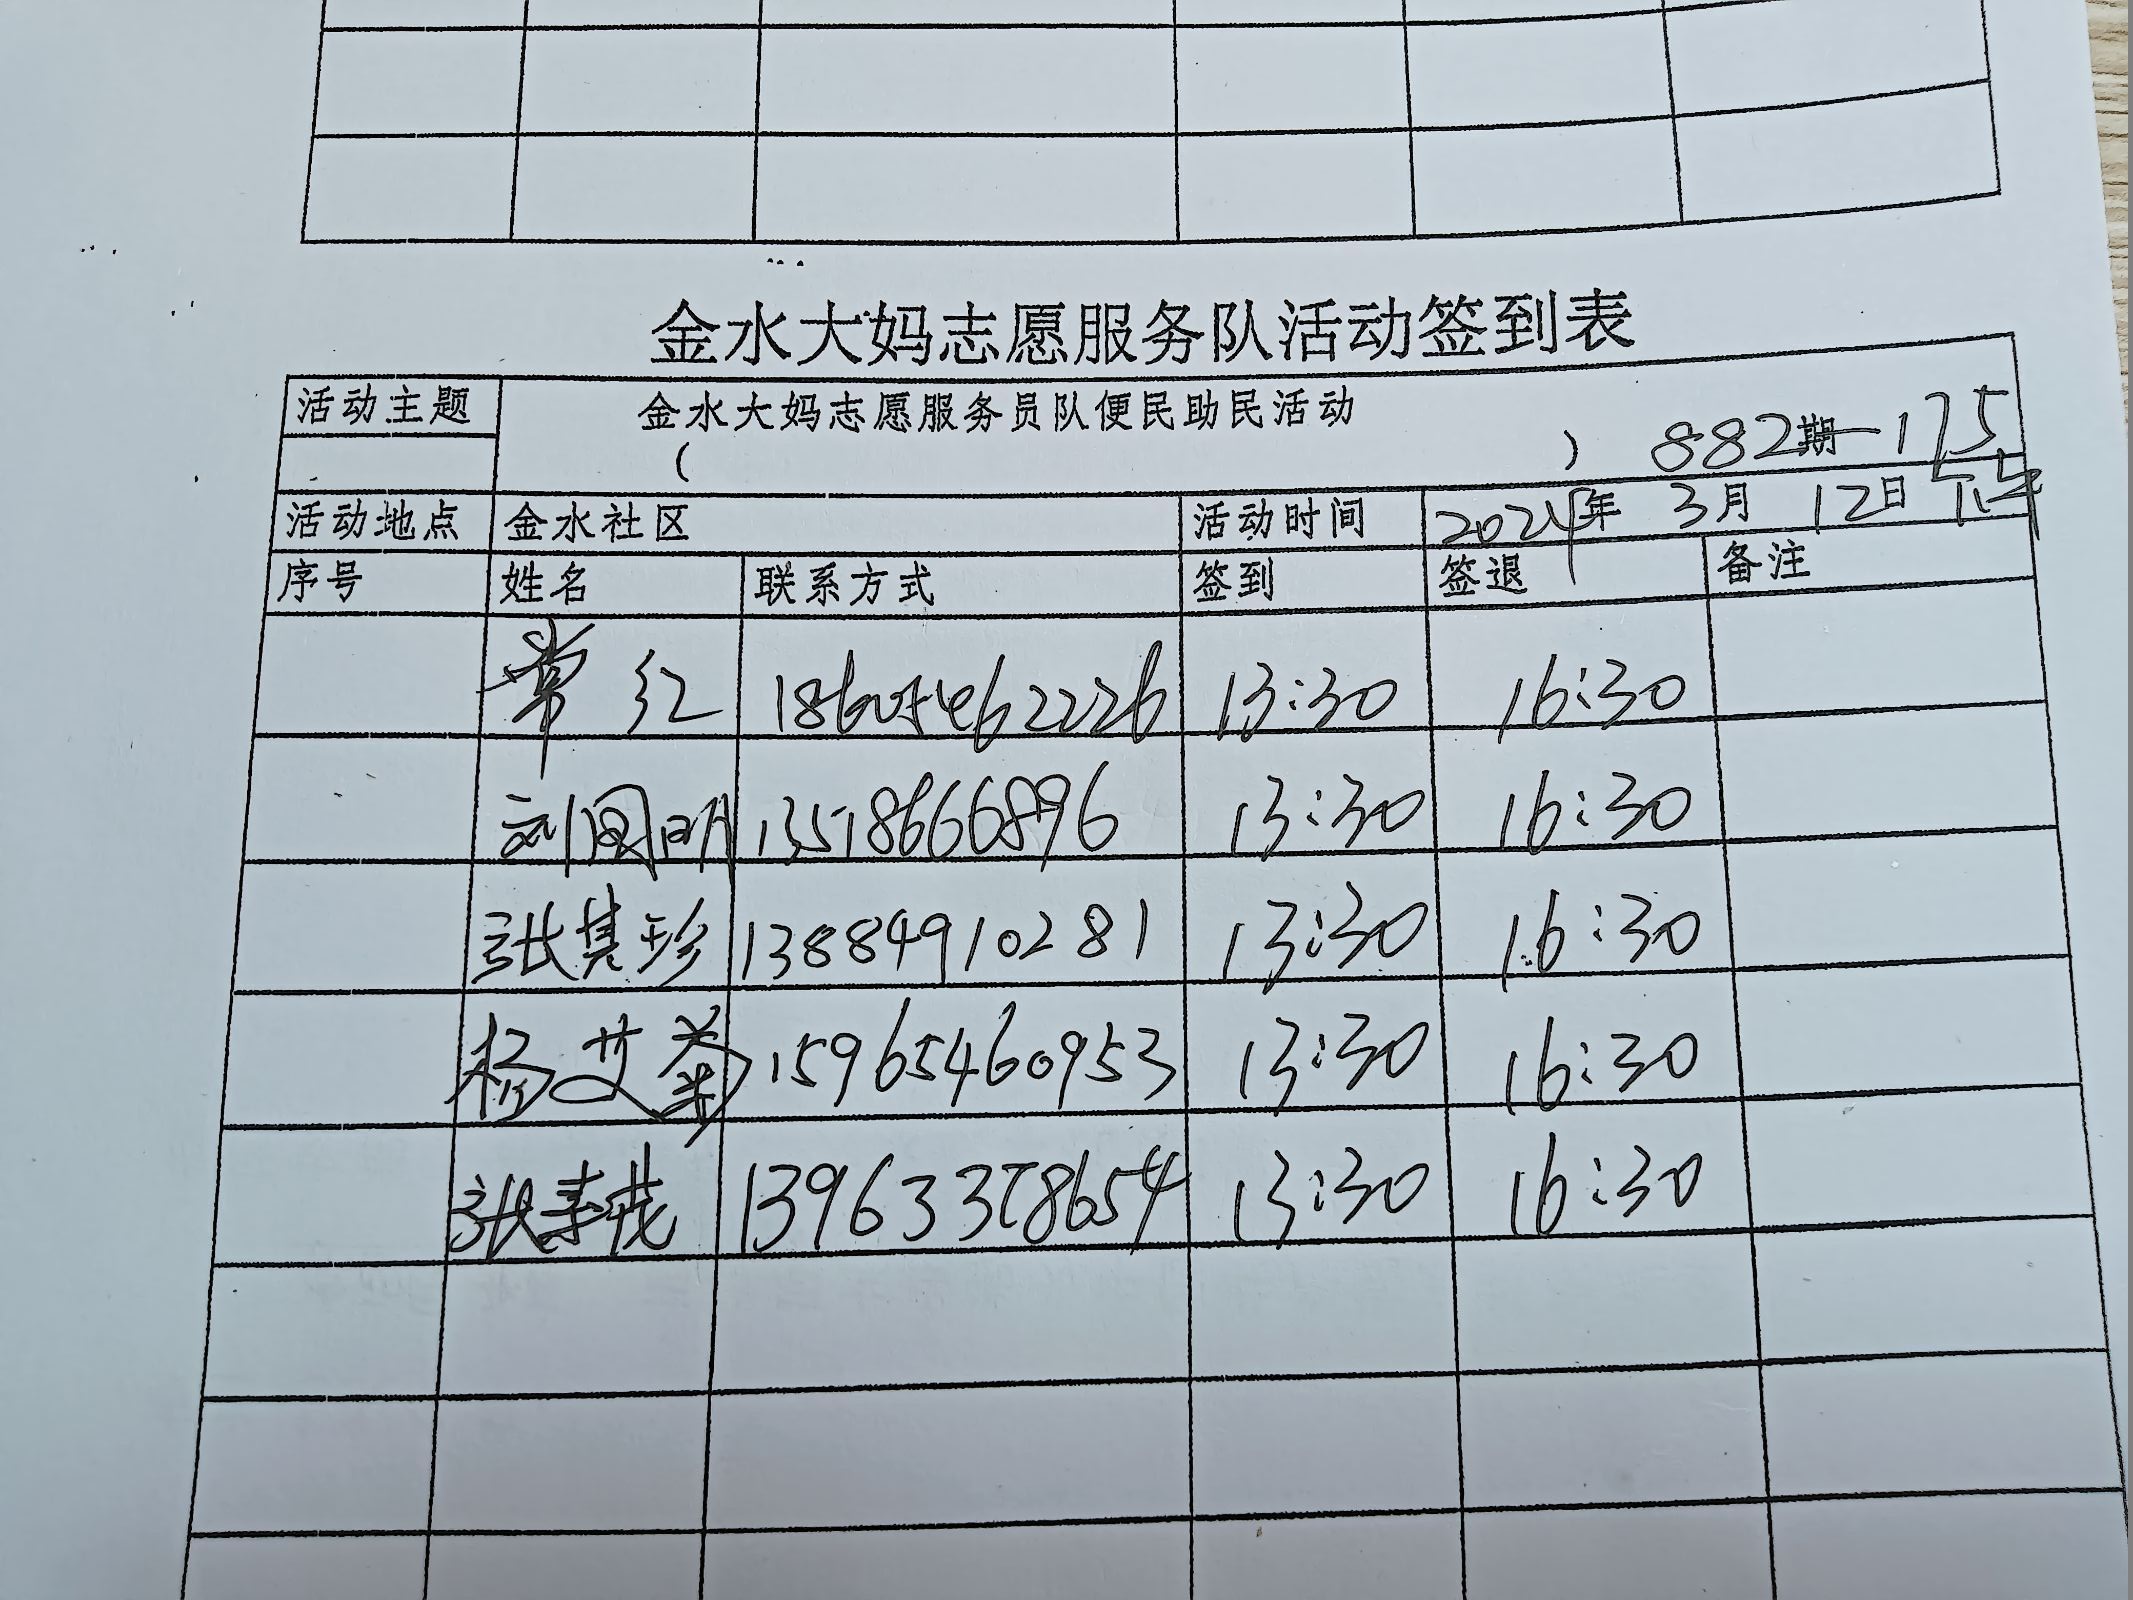 金水大妈志愿服务队活动签到表
活动主题 金水大妈志愿服务员队便民助民活动
( ) 882期-175
活动地点 金水社区 活动时间 2024年 3月 12日 下午
序号 姓名 联系方式 签到 签退 备注
常红 18605462226 13:30 16:30
刘国明 13518666896 13:30 16:30
张其珍 13884910281 13:30 16:30
杨艾菊 15965460953 13:30 16:30
张 13963378654 13:30 16:30